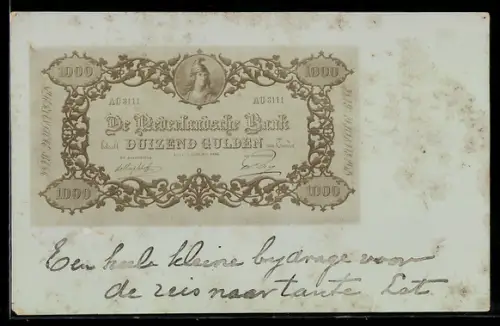 1000 1000
AU 3111 AU 3111
De Nederlandsche Bank
DUIZEND GULDEN
1000 1000
Een heele kleine bydrage voor
de reis naar tante Lot